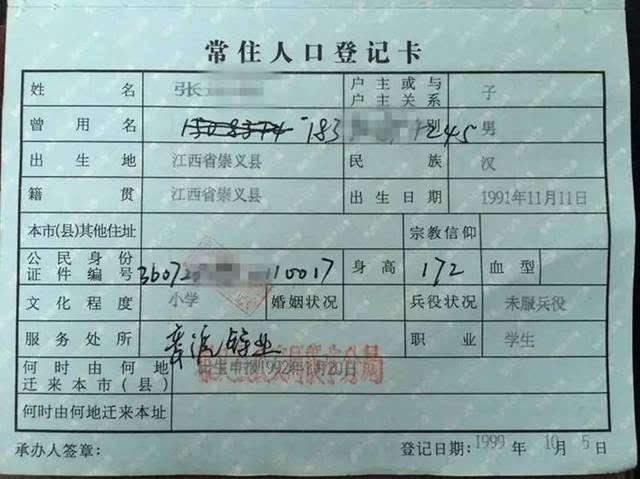 常住人口登记卡
姓名 张 户主或与户主关系 子
曾用名 183 1245 别 男
出生地 江西省崇义县 民族 汉
籍贯 江西省崇义县 出生日期 1991年11月11日
本市(县)其他住址 宗教信仰
公民身份证件编号 36072 110017 身高 172 血型
文化程度 小学 婚姻状况 兵役状况 未服兵役
服务处所 章源钨业 职业 学生
何时由何地迁来本市(县) 出生申报1992年1月20日
何时由何地迁来本址
承办人签章: 登记日期:1999年10月5日